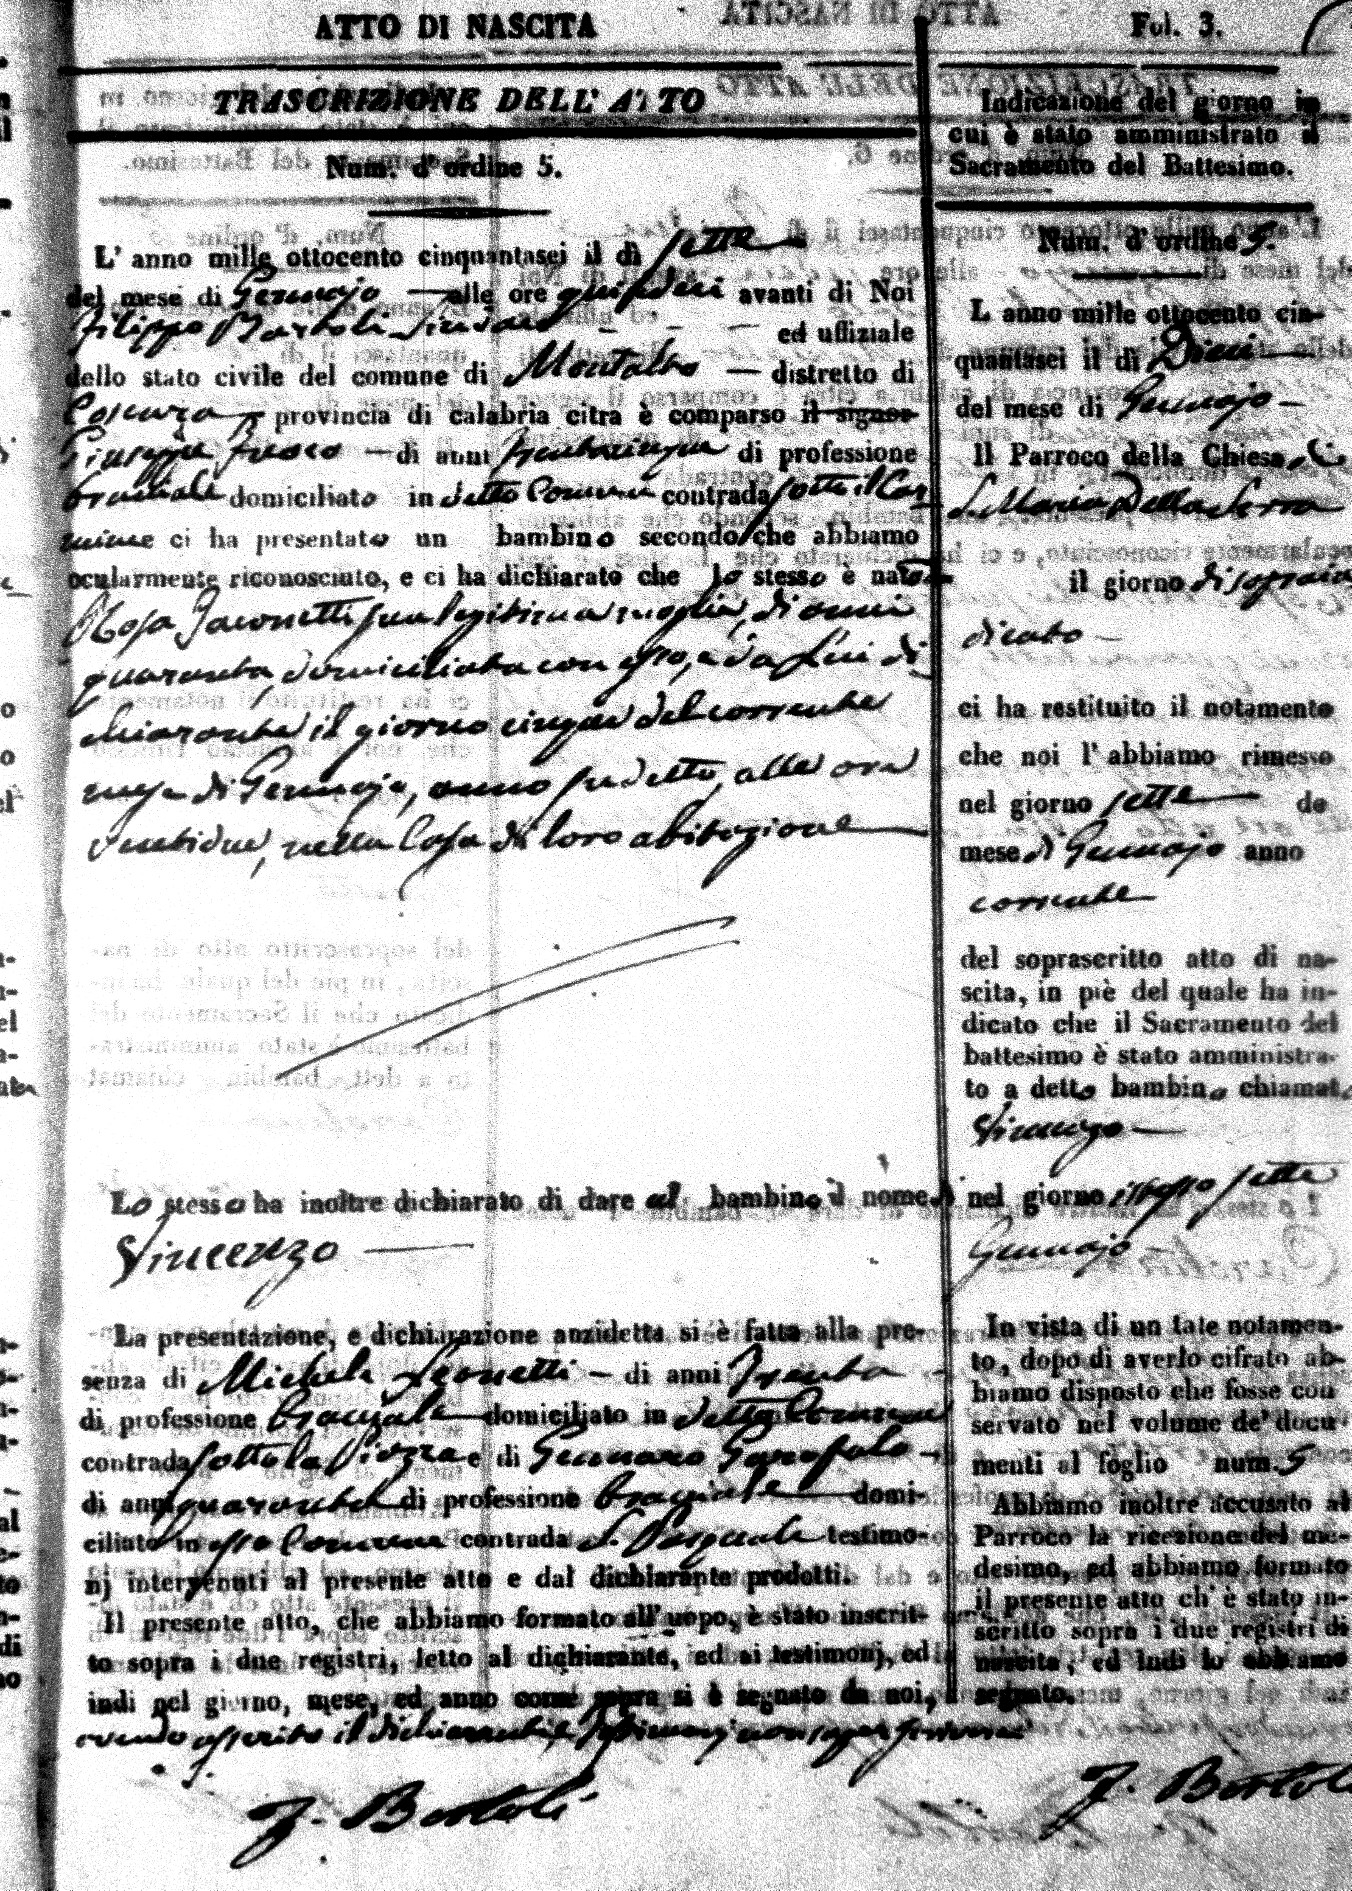 ATTO DI NASCITA
TRASCRIZIONE DELL' ATTO
Num. d' ordine 5.
L' anno mille ottocento cinquantasei il dì sette
del mese di Gennajo alle ore quindeci avanti di Noi
Filippo Bartoli Sindaco ed uffiziale
dello stato civile del comune di Montalto distretto di
Cosenza provincia di calabria citra è comparso il signor
Giuseppe Fusco di anni trentacinque di professione
bracciale domiciliato in detto Comune contrada sotto il Car-
mine ci ha presentato un bambino secondo che abbiamo
ocularmente riconosciuto, e ci ha dichiarato che lo stesso è nato da
Rosa Iaconetti sua legitima moglie, di anni
quaranta domiciliata con esso, e da Lui di
chiarante il giorno cinque del corrente
mese di Gennajo, anno sudetto, alle ora
ventidue, nella Casa di loro abitazione
Lo stesso ha inoltre dichiarato di dare al bambino il nome di
Vincenzo
La presentazione, e dichiarazione anzidetta si è fatta alla pre-
senza di Michele Leonetti di anni Trenta
di professione bracciale domiciliato in detto Comune
contrada sotto la Piazza e di Gennaro Garofalo
di anni quaranta di professione bracciale domi-
ciliato in esso Comune contrada S. Pasquale testimo-
nj intervenuti al presente atto e dal dichiarante prodotti.
Il presente atto, che abbiamo formato all' uopo, è stato inscrit-
to sopra i due registri, letto al dichiarante, ed ai testimonj, ed
indi nel giorno, mese, ed anno come sopra si è segnato da noi,
avendo asserito il dichiarante e testimonj non saper scrivere
F. Bartoli
Fol. 3.
Indicazione del giorno in
cui è stato amministrato il
Sacramento del Battesimo.
Num. d' ordine 5.
L anno mille ottocento cin-
quantasei il dì Dieci
del mese di Gennajo
Il Parroco della Chiesa di
S. Maria Della Serra
il giorno di sopra in
dicato
ci ha restituito il notamento
che noi l' abbiamo rimesso
nel giorno sette de
mese di Gennajo anno
corrente
del soprascritto atto di na-
scita, in piè del quale ha in-
dicato che il Sacramento del
battesimo è stato amministra-
to a detto bambino chiamato
Vincenzo
nel giorno istesso sette
Gennajo
In vista di un tale notamen-
to, dopo di averlo cifrato ab-
biamo disposto che fosse con
servato nel volume de' docu
menti al foglio num. 5
Abbiamo inoltre accusato al
Parroco la ricezione del me-
desimo, ed abbiamo formato
il presente atto ch' è stato in-
scritto sopra i due registri di
nascita, ed indi lo abbiamo
segnato.
F. Bartoli